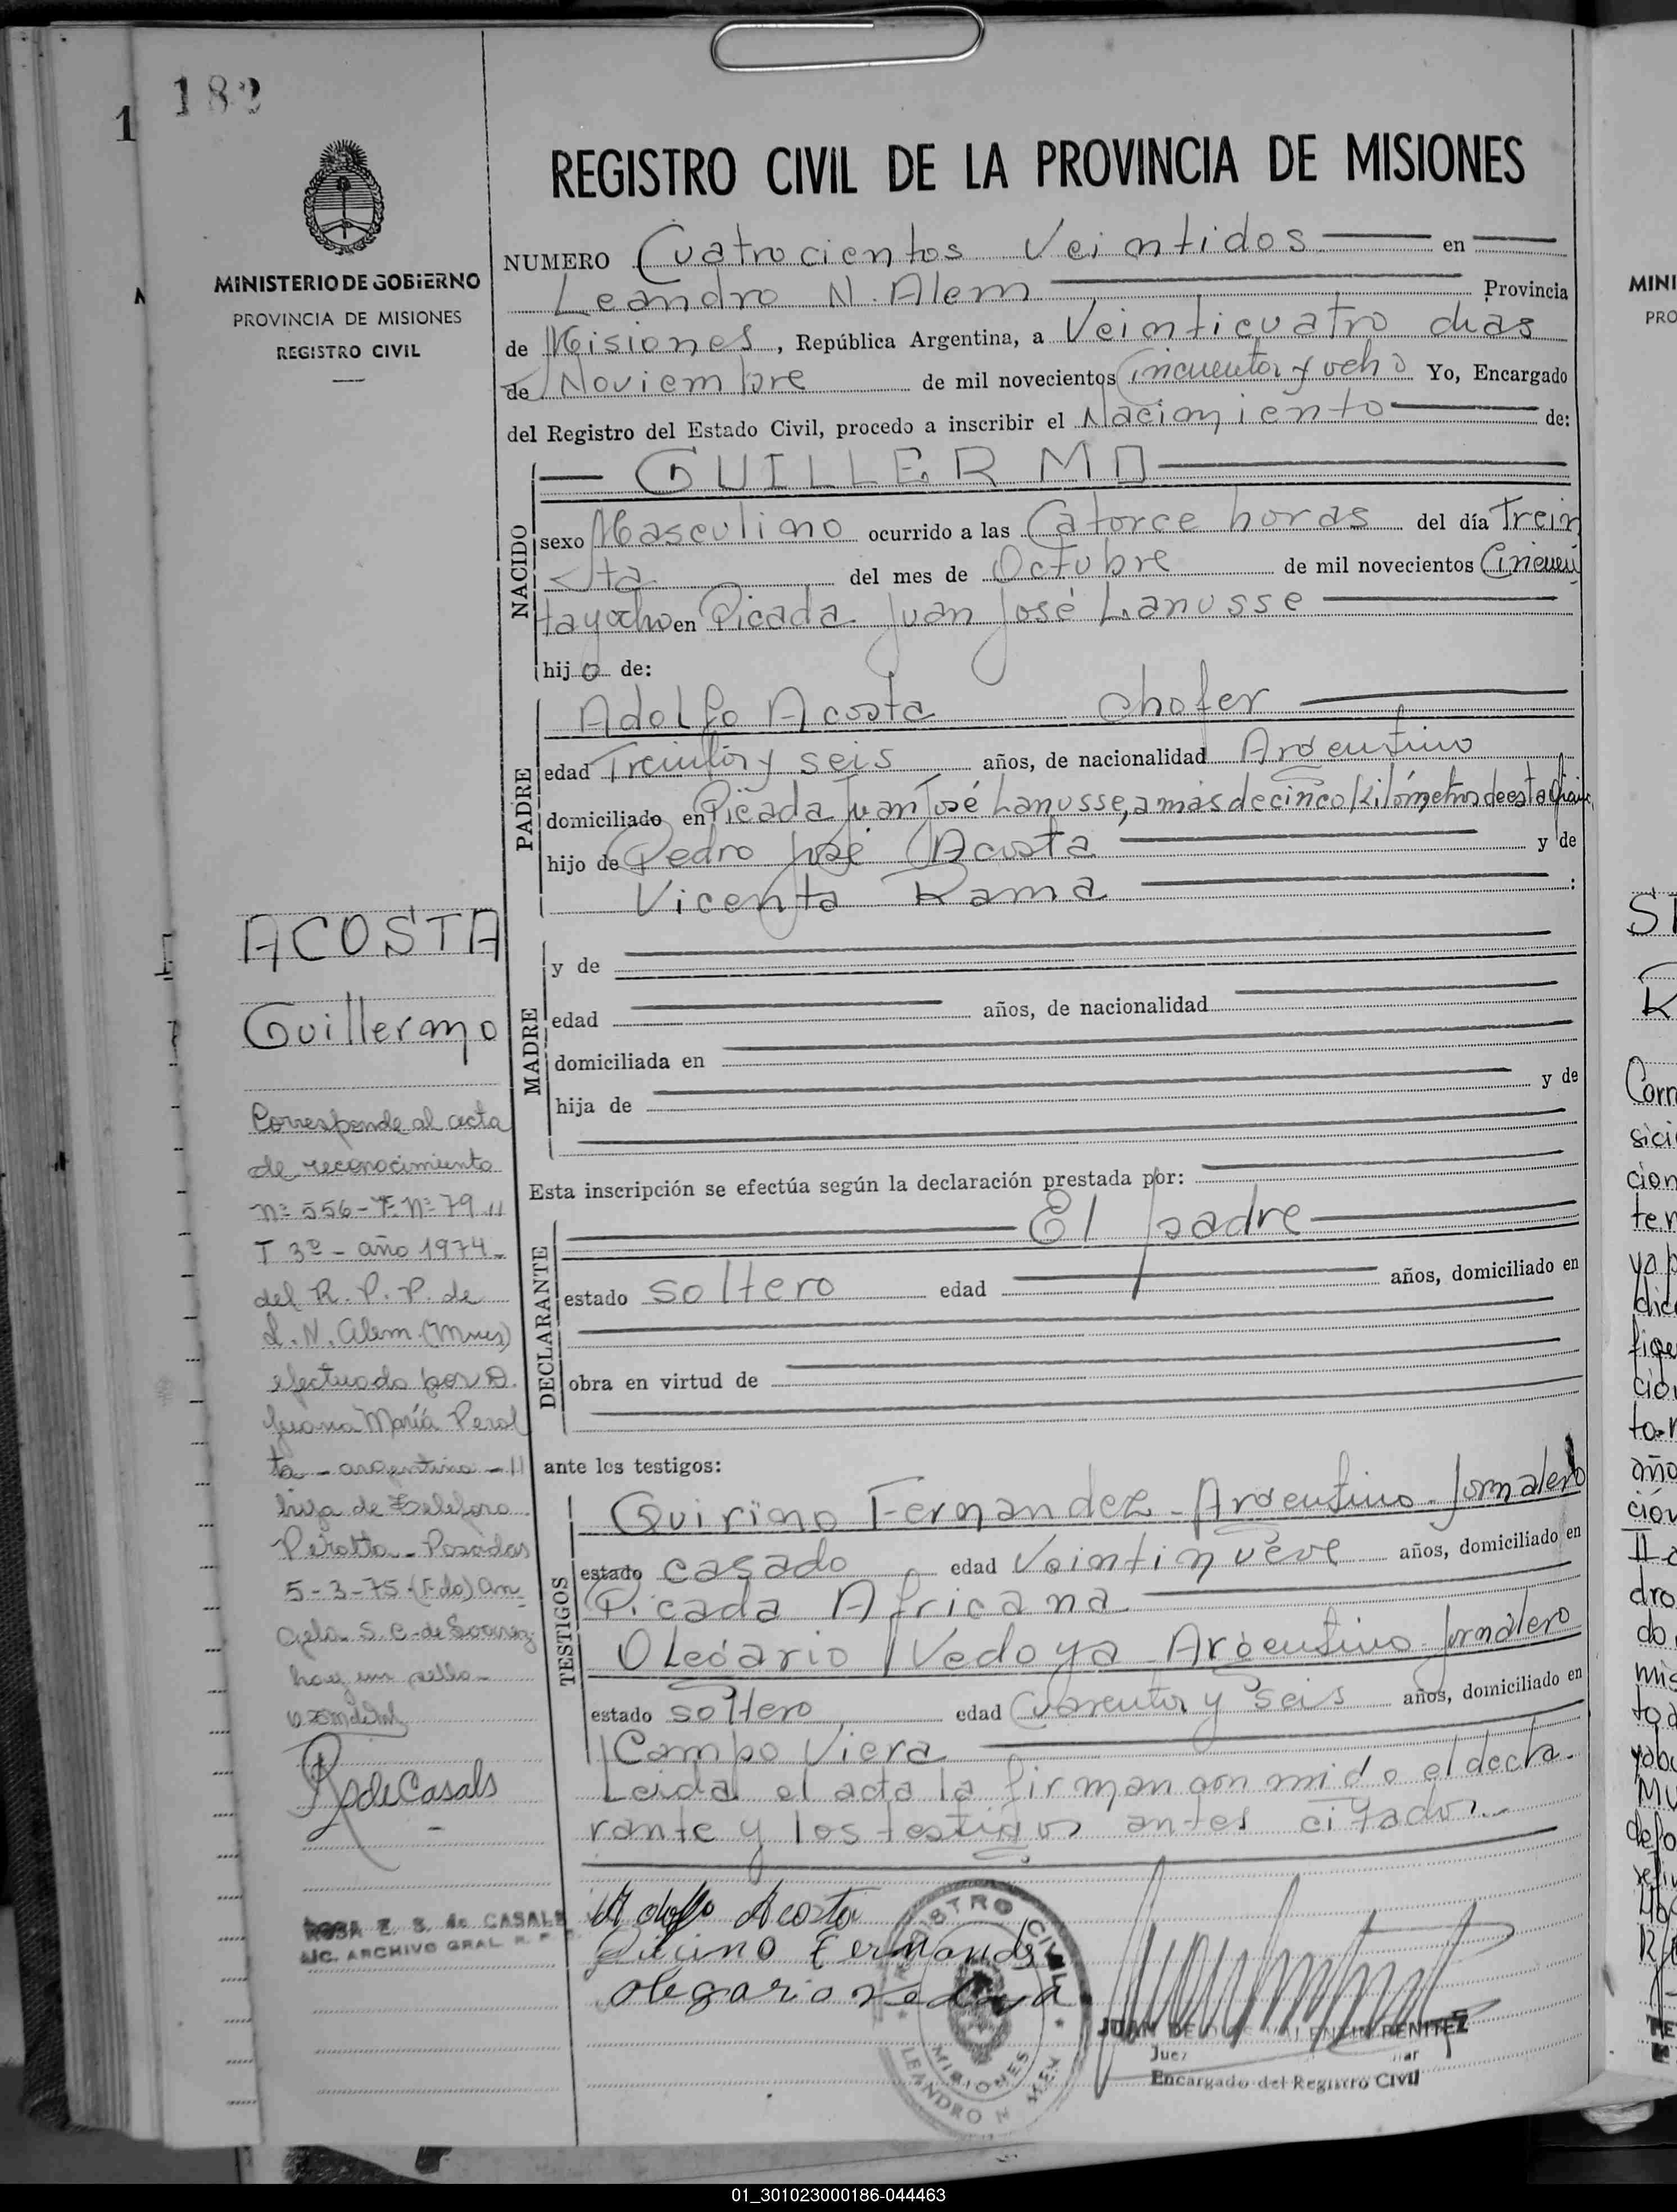 182
1
MINISTERIO DE GOBIERNO
PROVINCIA DE MISIONES
REGISTRO CIVIL
REGISTRO CIVIL DE LA PROVINCIA DE MISIONES
NUMERO Cuatrocientos Veintidos en
Leandro N. Alem Provincia
de Misiones, República Argentina, a Veinticuatro dias
de Noviembre de mil novecientos Cincuenta y ocho Yo, Encargado
del Registro del Estado Civil, procedo a inscribir el Nacimiento de:
NACIDO
GUILLERMO
sexo Masculino ocurrido a las Catorce horas del día Trein
ta del mes de Octubre de mil novecientos Cincuen
ta y ocho en Picada Juan José Lanusse
hijo de:
PADRE
Adolfo Acosta chofer
edad Treinta y seis años, de nacionalidad Argentino
domiciliado en Picada Juan José Lanusse, a más de cinco kilómetros de esta
hijo de Pedro José Acosta y de
Vicenta Rama :
MADRE
y de
edad años, de nacionalidad
domiciliada en
hija de y de
Esta inscripción se efectúa según la declaración prestada por:
DECLARANTE
El padre
estado soltero edad años, domiciliado en
obra en virtud de
ante los testigos:
TESTIGOS
Quirino Fernandez - Argentino - Jornalero
estado casado edad Veintinueve años, domiciliado en
Picada Africana
Olegario Vedoya - Argentino - Jornalero
estado soltero edad Cuarenta y seis años, domiciliado en
Campo Viera
Leida el acta la firman con mido el decla-
rante y los testigos antes citados.-
Adolfo Acosta
Quirino Fernandez
olegario vedoya
REGISTRO CIVIL
MISIONES
LEANDRO N. ALEM
JUAN DE DIOS VALENTIN BENITEZ
Juez
Encargado del Registro Civil
ACOSTA
Guillermo
Corresponde al acta
de reconocimiento
nº 556 - Fº Nº 79 //
T 3º - año 1974 -
del R. P. P. de
L. N. Alem. (Mnes)
efectuado por D.
Juana María Peral
ta - argentina - //
hija de Telésforo
Peralta - Posadas
5-3-75 - (Fdo) An
gela S. C. de Soarez
hay un sello -
R. de Casals
ROSA E. S. de CASALS
ARCHIVO GRAL. R. P.
MINI
PRO
ST
R
Corr
sici
cion
ter
dic
ció
to-r
año
ción
dro
do
mis
01_301023000186-044463